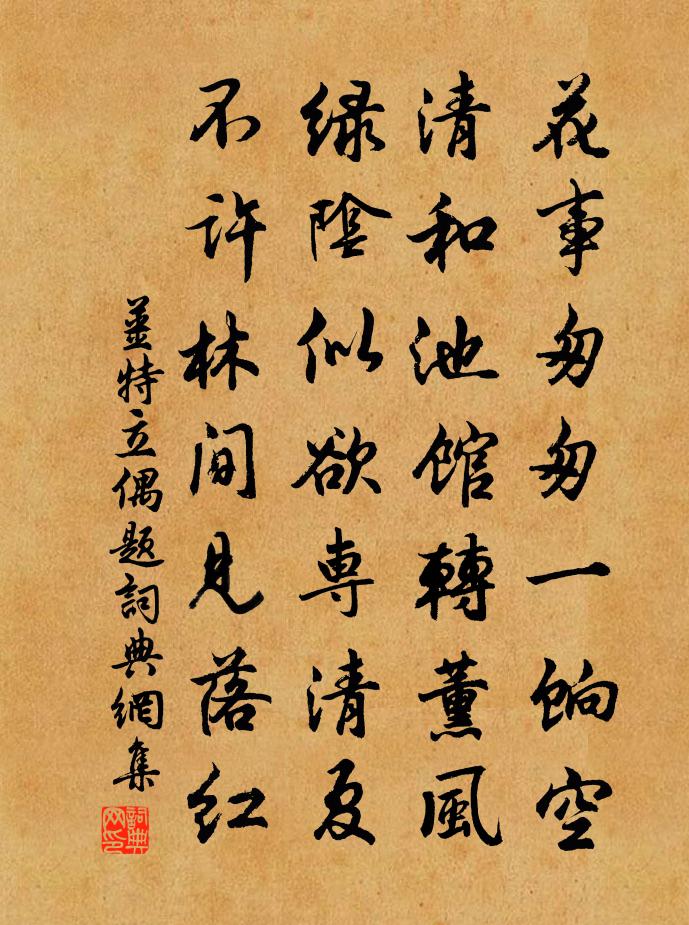 花事匆匆一餉空
清和池館轉薰風
綠陰似欲專清夏
不許林間見落紅
姜特立偶題詞典網集
詞典网印